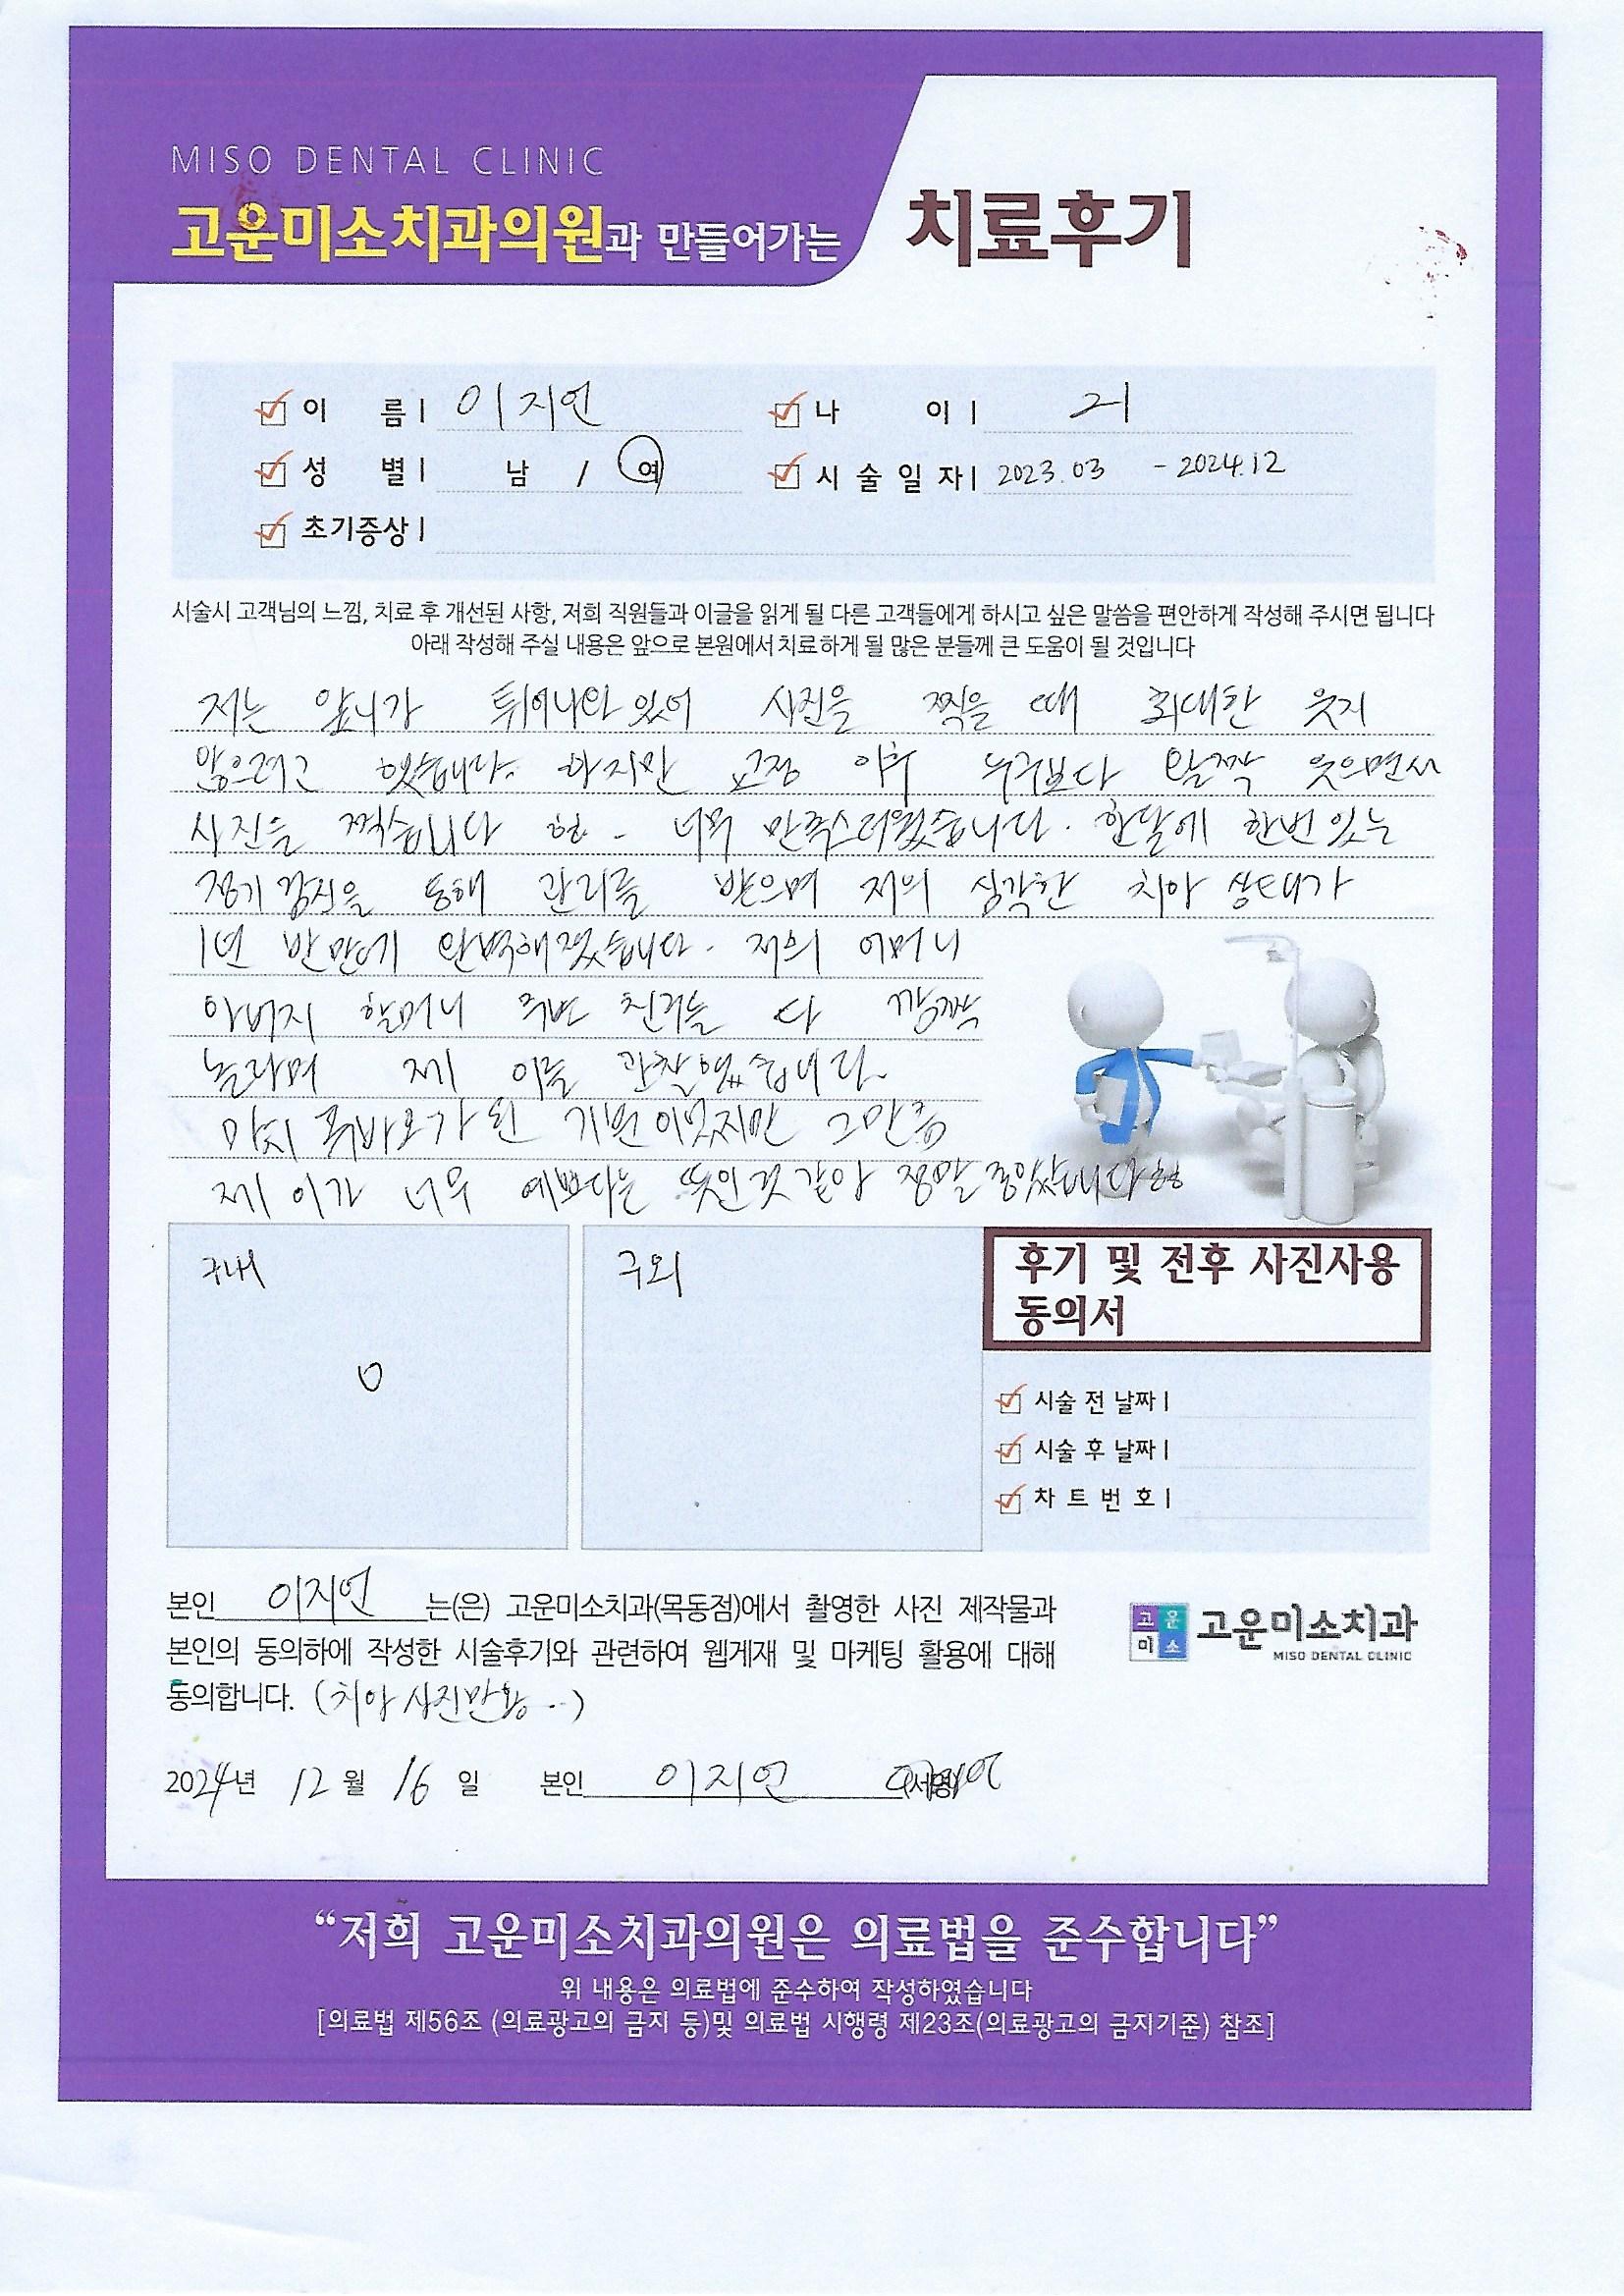 MISO DENTAL CLINIC
고운미소치과의원과 만들어가는 치료후기
이 름 | 이지연 나 이 | 21
성 별 | 남 / 여 시 술 일 자 | 2023.03 - 2024.12
초기증상 |
시술시 고객님의 느낌, 치료 후 개선된 사항, 저희 직원들과 이글을 읽게 될 다른 고객들에게 하시고 싶은 말씀을 편안하게 작성해 주시면 됩니다
아래 작성해 주실 내용은 앞으로 본원에서 치료하게 될 많은 분들께 큰 도움이 될 것입니다
저는 앞니가 튀어나와 있어 사진을 찍을 때 최대한 웃지
않으려고 했습니다. 하지만 교정 이후 누구보다 활짝 웃으면서
사진을 찍습니다 너무 만족스러웠습니다. 한달에 한번 있는
정기 검진을 통해 관리를 받으며 저의 심각한 치아 상태가
1년 반 만에 완벽해졌습니다. 저의 어머니
아버지 할머니 주변 친구들 다 깜짝
놀라며 제 이를 관찰했습니다.
마치 쥬바호가 된 기분이었지만 그만큼
제 이가 너무 예쁘다는 뜻인 것 같아 정말 좋았습니다 ㅎㅎ
구내 구외
후기 및 전후 사진사용
동의서
시술 전 날짜 |
시술 후 날짜 |
차 트 번 호 |
본인 이지연 는(은) 고운미소치과(목동점)에서 촬영한 사진 제작물과
본인의 동의하에 작성한 시술후기와 관련하여 웹게재 및 마케팅 활용에 대해
동의합니다. (치아 사진만 ..)
고운미소 고운미소치과
MISO DENTAL CLINIC
2024년 12월 16일 본인 이지연 (서명)
“저희 고운미소치과의원은 의료법을 준수합니다”
위 내용은 의료법에 준수하여 작성하였습니다
[의료법 제56조 (의료광고의 금지 등)및 의료법 시행령 제23조(의료광고의 금지기준) 참조]